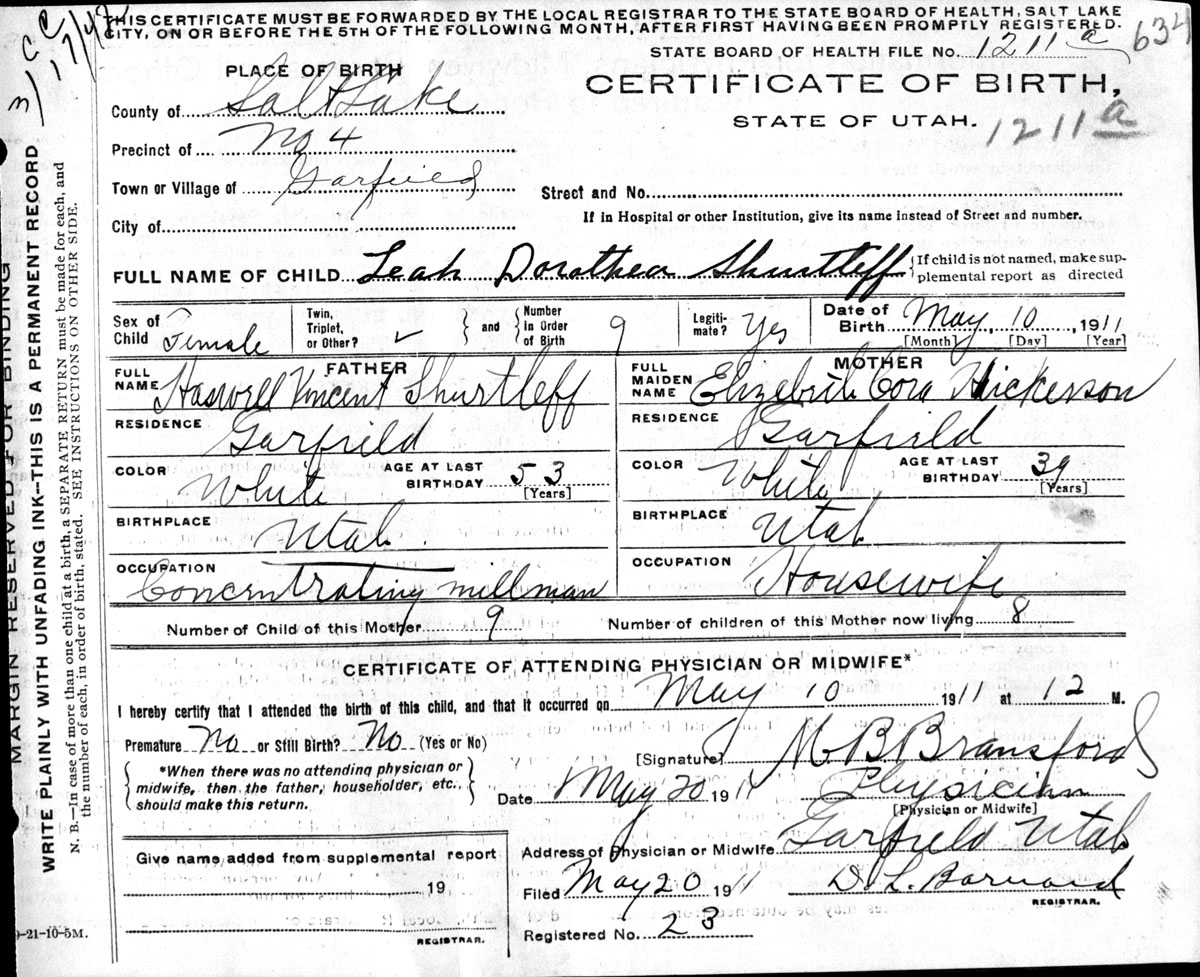 THIS CERTIFICATE MUST BE FORWARDED BY THE LOCAL REGISTRAR TO THE STATE BOARD OF HEALTH, SALT LAKE
CITY, ON OR BEFORE THE 5TH OF THE FOLLOWING MONTH, AFTER FIRST HAVING BEEN PROMPTLY REGISTERED.
STATE BOARD OF HEALTH FILE No. 1211 a
634
PLACE OF BIRTH
CERTIFICATE OF BIRTH,
STATE OF UTAH.
1211 a
County of Salt Lake
Precinct of No 4
Town or Village of Garfield
Street and No.
If in Hospital or other Institution, give its name instead of Street and number.
City of
FULL NAME OF CHILD Leah Dorothea Shurtleff { If child is not named, make sup-
plemental report as directed
Sex of Child Female
Twin, Triplet, or Other? ✓ } and { Number in Order of Birth 9
Legiti-mate? Yes
Date of Birth May, 10, 1911
[Month] [Day] [Year]
FATHER
FULL NAME Haswell Vincent Shurtleff
RESIDENCE Garfield
COLOR White AGE AT LAST BIRTHDAY 53
[Years]
BIRTHPLACE Utah
OCCUPATION Concentrating millman
MOTHER
FULL MAIDEN NAME Elizebeth Cora Hickerson
RESIDENCE Garfield
COLOR White AGE AT LAST BIRTHDAY 39
[Years]
BIRTHPLACE Utah
OCCUPATION Housewife
Number of Child of this Mother 9 Number of children of this Mother now living 8
CERTIFICATE OF ATTENDING PHYSICIAN OR MIDWIFE*
I hereby certify that I attended the birth of this child, and that it occurred on May 10 1911 at 12 M.
Premature No or Still Birth? No (Yes or No)
{ *When there was no attending physician or
midwife, then the father, householder, etc.,
should make this return. }
[Signature] M B Bransford
Date May 20 1911 Physician
[Physician or Midwife]
Give name added from supplemental report
19
REGISTRAR.
Address of Physician or Midwife Garfield Utah
Filed May 20 1911 D. L. Barnard
REGISTRAR.
Registered No. 23
9-21-10-5M.
MARGIN RESERVED FOR BINDING
WRITE PLAINLY WITH UNFADING INK--THIS IS A PERMANENT RECORD
N. B.—In case of more than one child at a birth, a SEPARATE RETURN must be made for each, and
the number of each, in order of birth, stated. SEE INSTRUCTIONS ON OTHER SIDE.